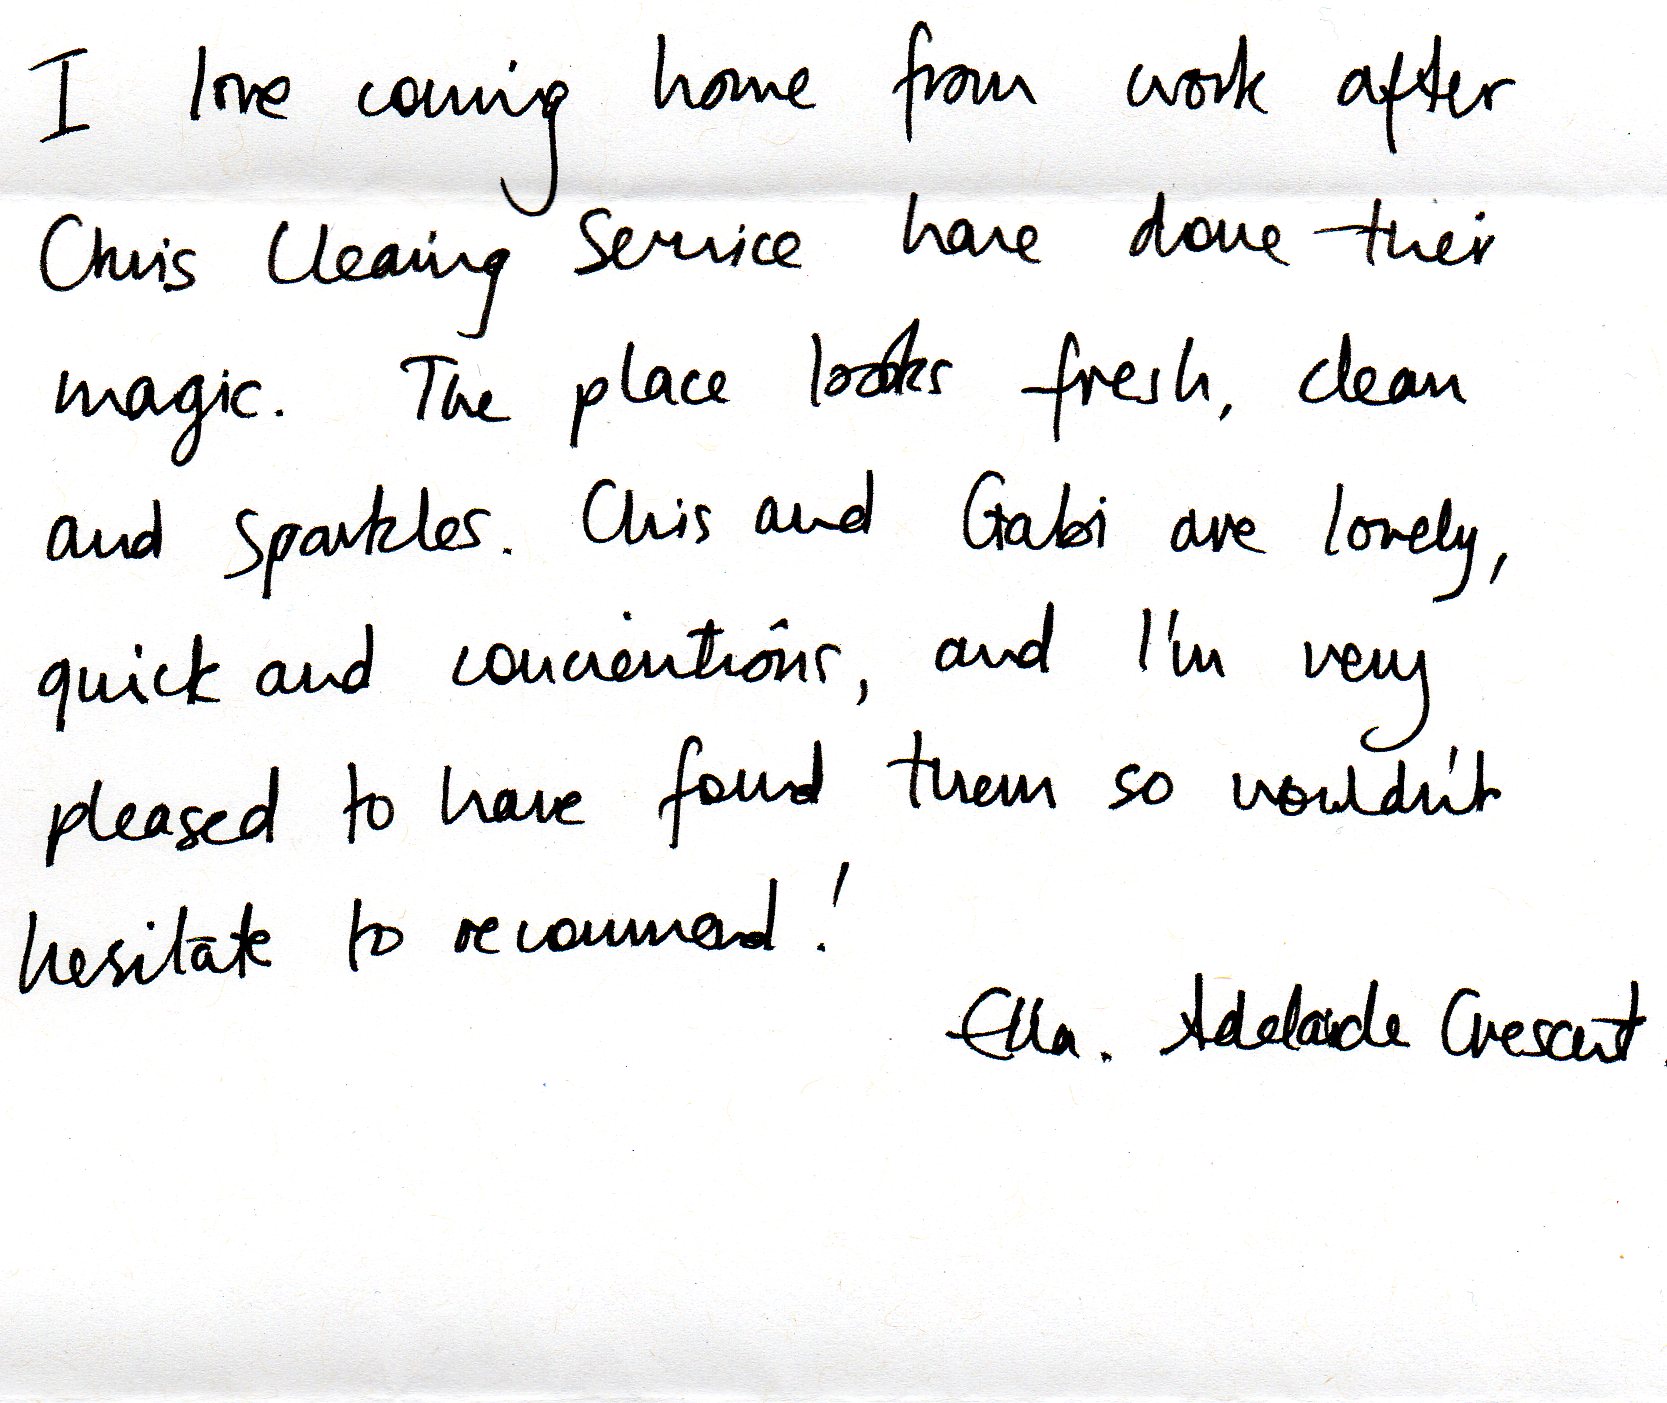 I love coming home from work after
Chris Cleaning Service have done their
magic. The place looks fresh, clean
and sparkles. Chris and Gabi are lovely,
quick and concientious, and I'm very
pleased to have found them so wouldn't
hesitate to recommend!
Ella. Adelaide Crescent.